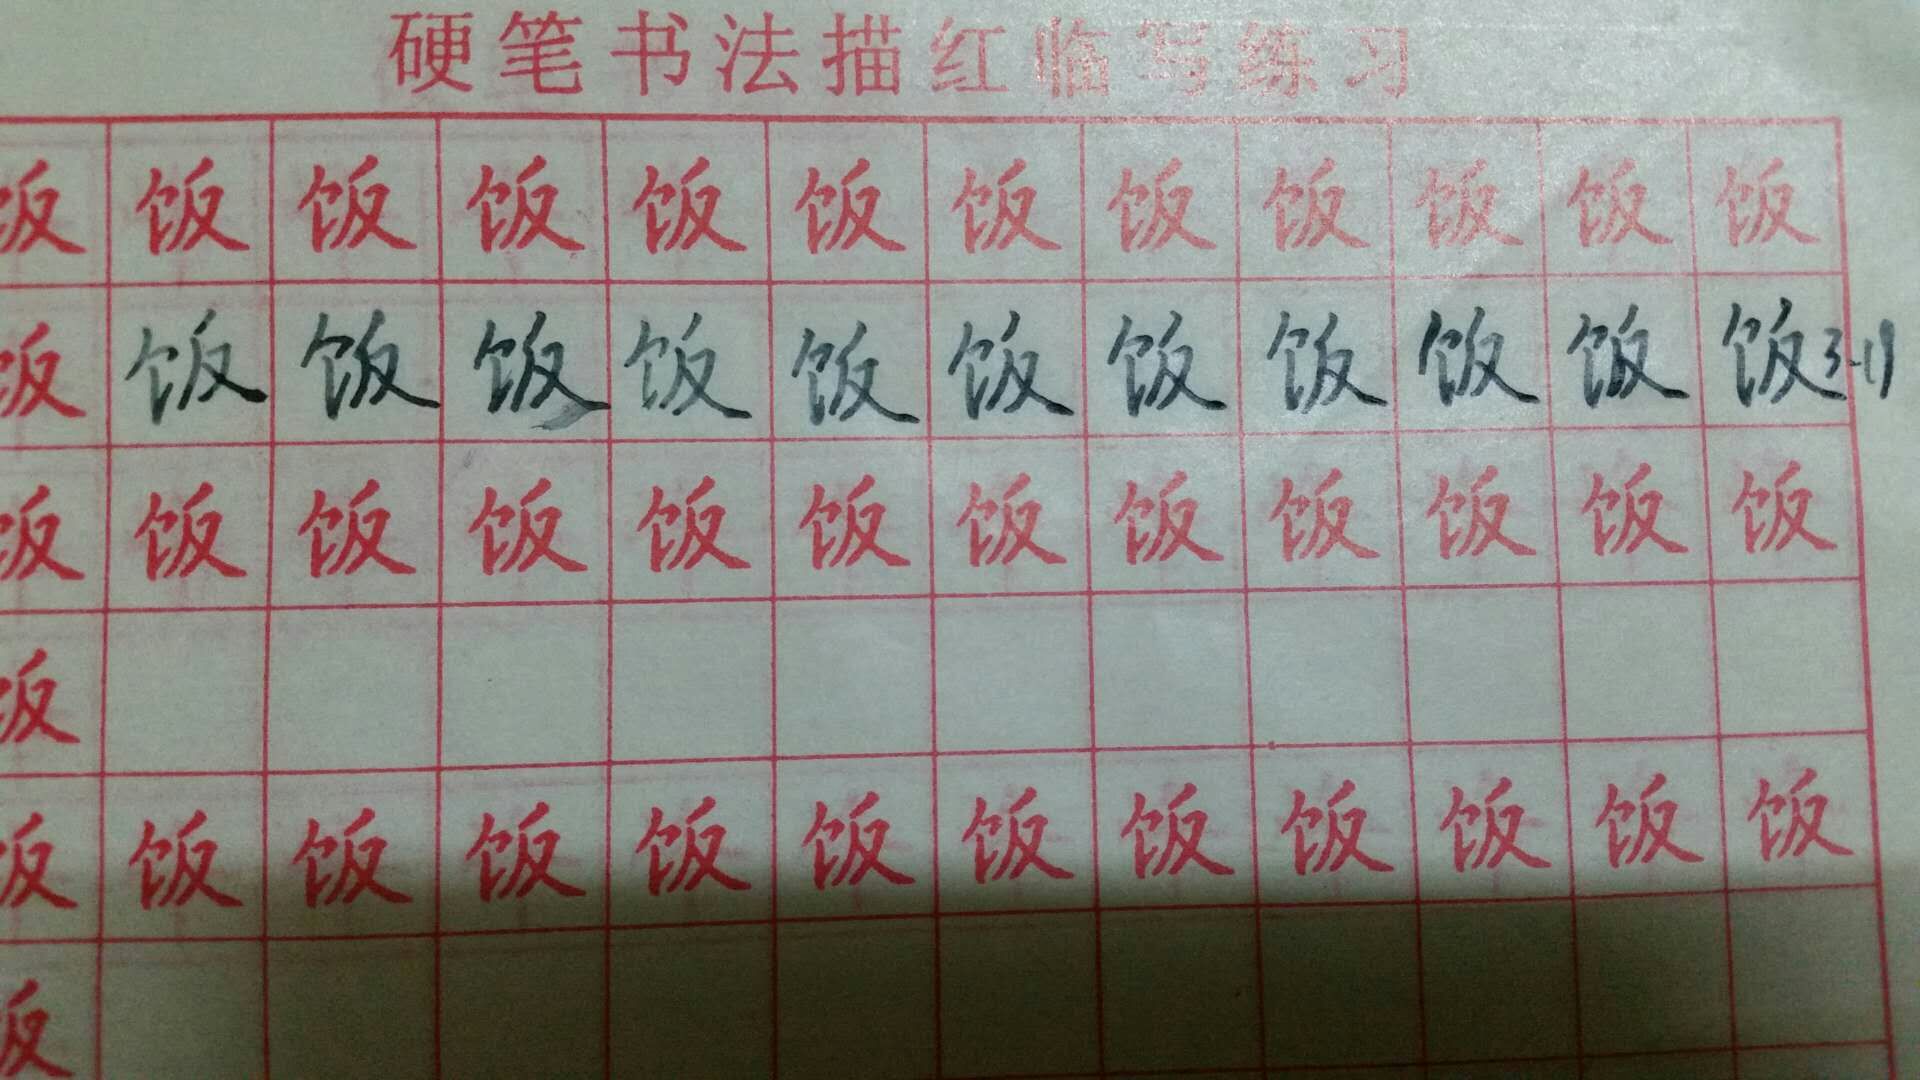 硬笔书法描红临写练习
饭饭饭饭饭饭饭饭饭饭饭饭
饭饭饭饭饭饭饭饭饭饭饭饭3-11
饭饭饭饭饭饭饭饭饭饭饭饭
饭
饭饭饭饭饭饭饭饭饭饭饭饭
饭